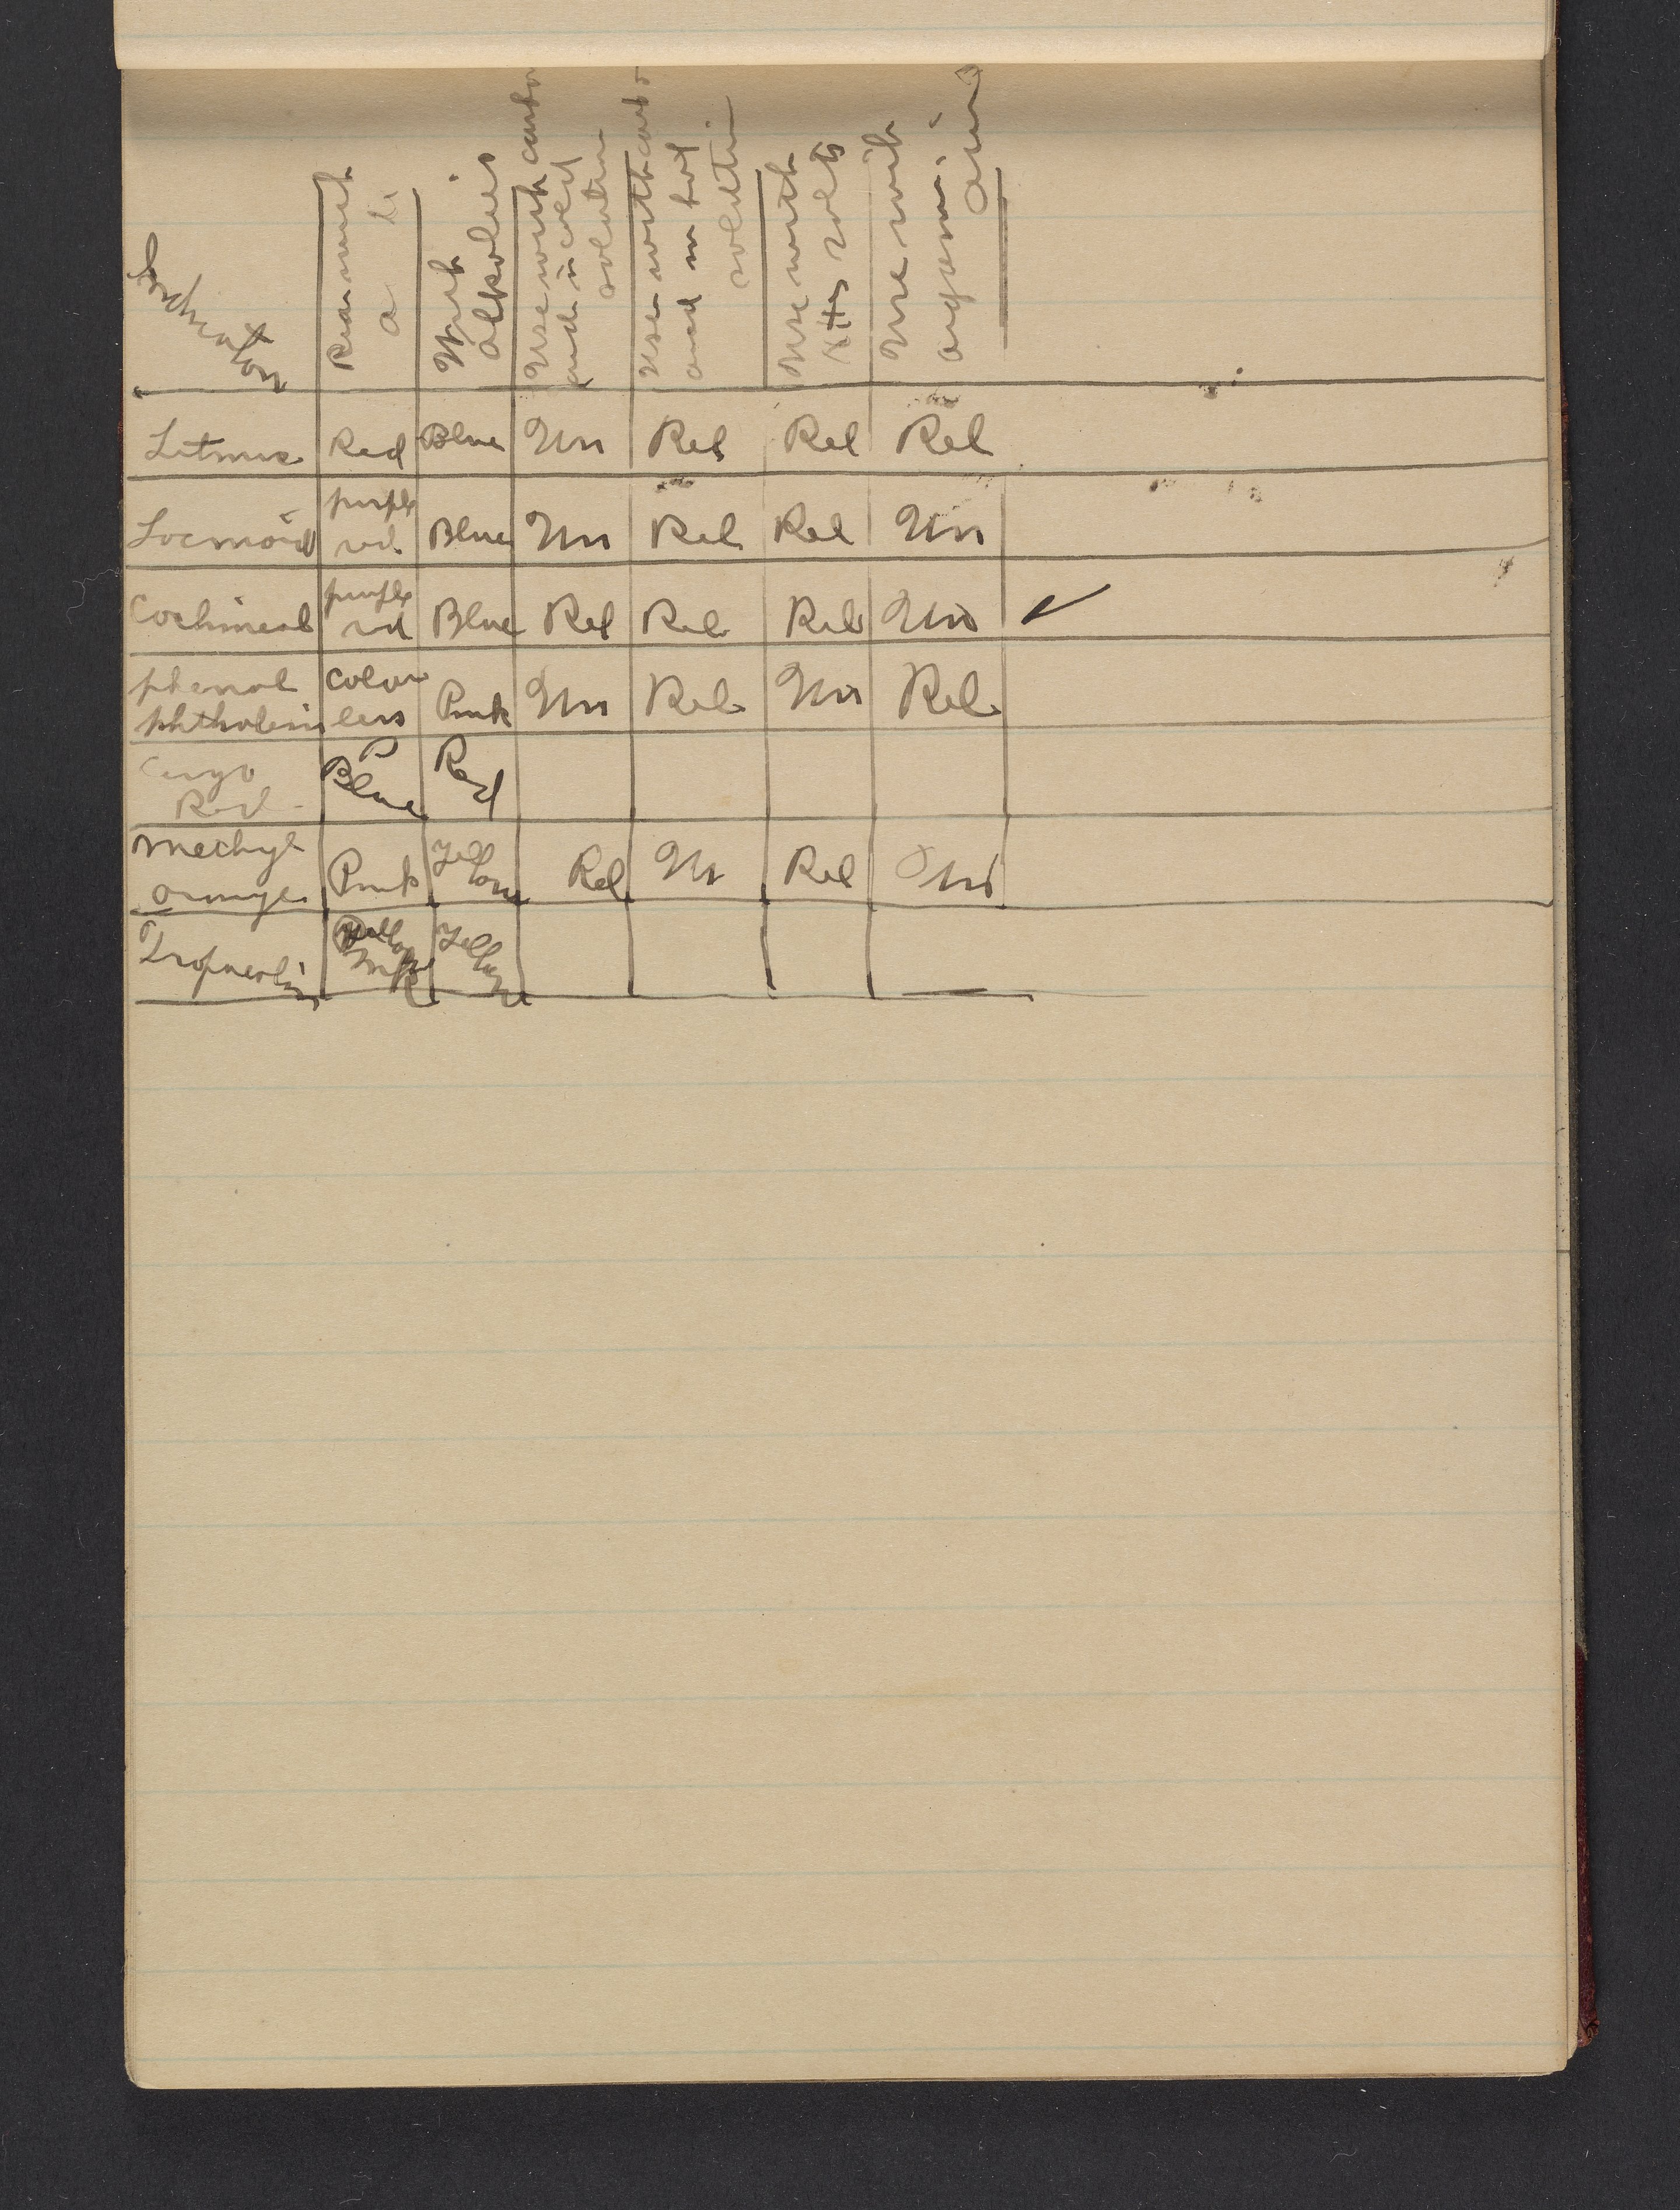 Indicator
Reac with
a
With
alkalies
Use with carbo
and in cold
solution
Use with carbo
and in hot
solution
Use with
NH4 salts
Use with
organic
acid
Litmus Red Blue Un Rel Rel Rel
Lacmoid purple red Blue Un Rel Rel Un
Cochineal purple red Blue Rel Rel Rel Un ✓
phenol phthalein color less Pink Un Rel Un Rel
Congo Red Blue Red
Methyl orange Pink Yellow Rel Un Rel Un
Tropaeolin Yellow